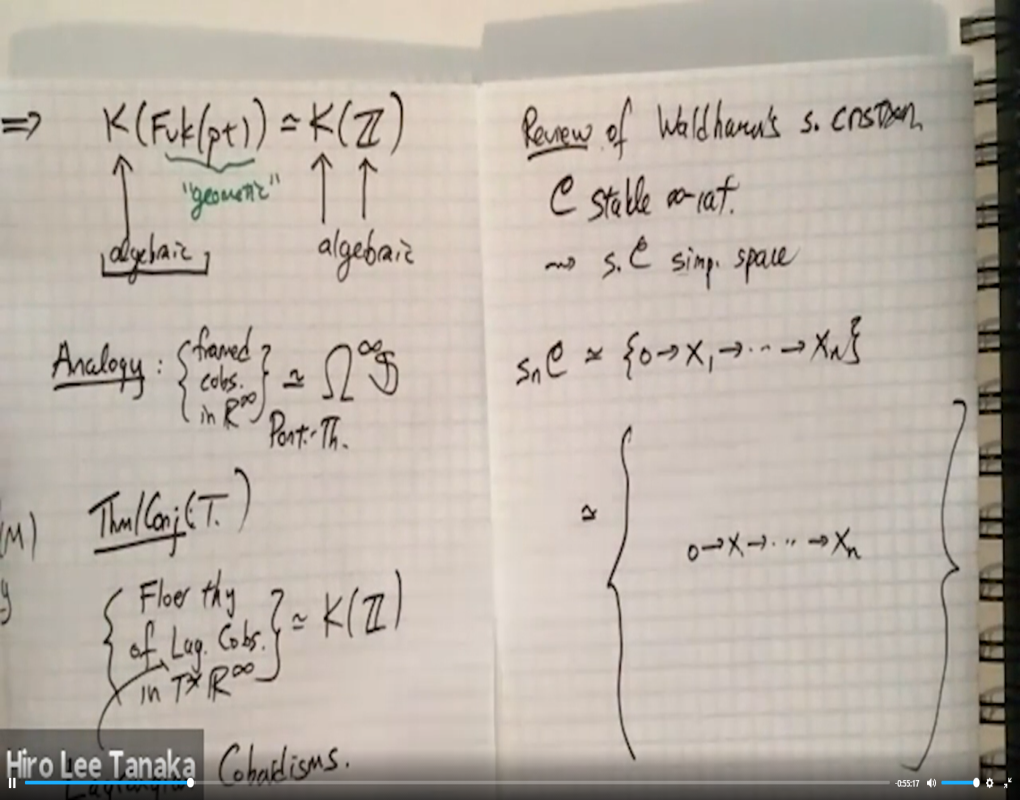 ⇒ K(Fuk(pt)) ≃ K(ℤ)
"geometric"
algebraic algebraic
Analogy: { framed
cobs.
in ℝ^∞ } ≃ Ω^∞ 𝕊
Pont.-Th.
Thm/Conj(T.)
{ Floer thy
of Lag. Cobs.
in T*ℝ^∞ } ≃ K(ℤ)
Cobordisms.
(M)
y
Review of s. 
C stable ∞-cat.
⇝ s.C simp. space
sₙC ≃ {0→X₁→⋯→Xₙ}
≃ { 0→X→⋯→Xₙ }
Hiro Lee Tanaka
-0:55:17